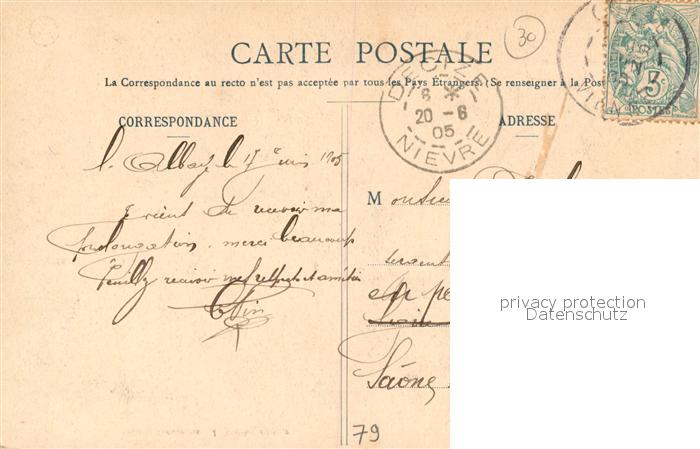 30
CARTE POSTALE
La Correspondance au recto n'est pas acceptée par tous les Pays Étrangers (Se renseigner à la Post
DECIZE
8
20-6
05
NIEVRE
3c
POSTES
CORRESPONDANCE
ADRESSE
le 17 juin 1905
Je viens de recevoir ma
prolongation, merci beaucoup
Veuillez recevoir mes respects et amitiés
Monsieu
sergent
en pe
Saône
79
privacy protection
Datenschutz